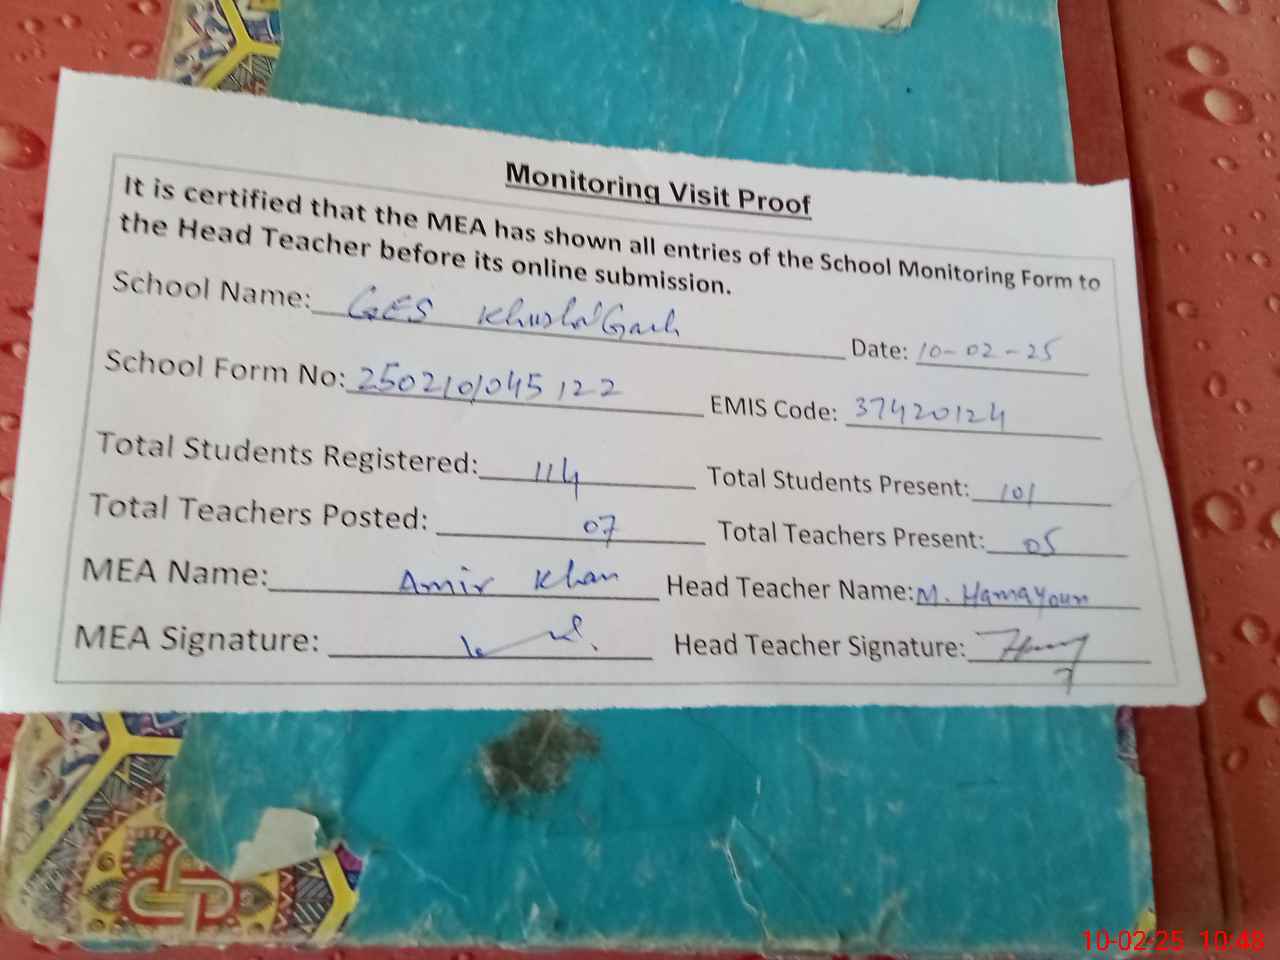 Monitoring Visit Proof
It is certified that the MEA has shown all entries of the School Monitoring Form to
the Head Teacher before its online submission.
School Name: GES Khushal Garh Date: 10-02-25
School Form No: 2502101045122 EMIS Code: 37420124
Total Students Registered: 114 Total Students Present: 101
Total Teachers Posted: 07 Total Teachers Present: 05
MEA Name: Amir Khan Head Teacher Name: M. Hamayoun
MEA Signature: Head Teacher Signature:
10-02-25 10:48